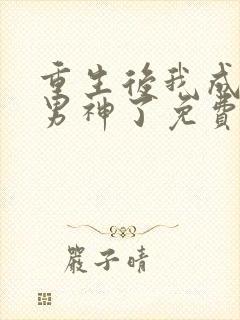 重生後我成
男神了免費
嚴子晴